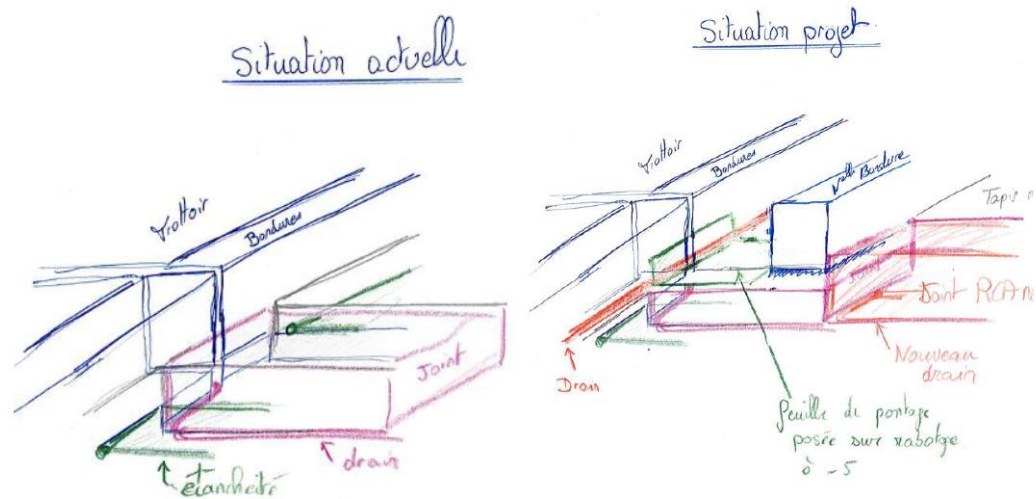 Situation actuelle
Trottoir
Bordures
Joint
drain
étancheité
Situation projet
Trottoir
Bordures
Nvlle Bordure
Tapis
Joint
Joint
Nouveau
drain
Drain
feuille de pontage
posée sur rabotge
à -5